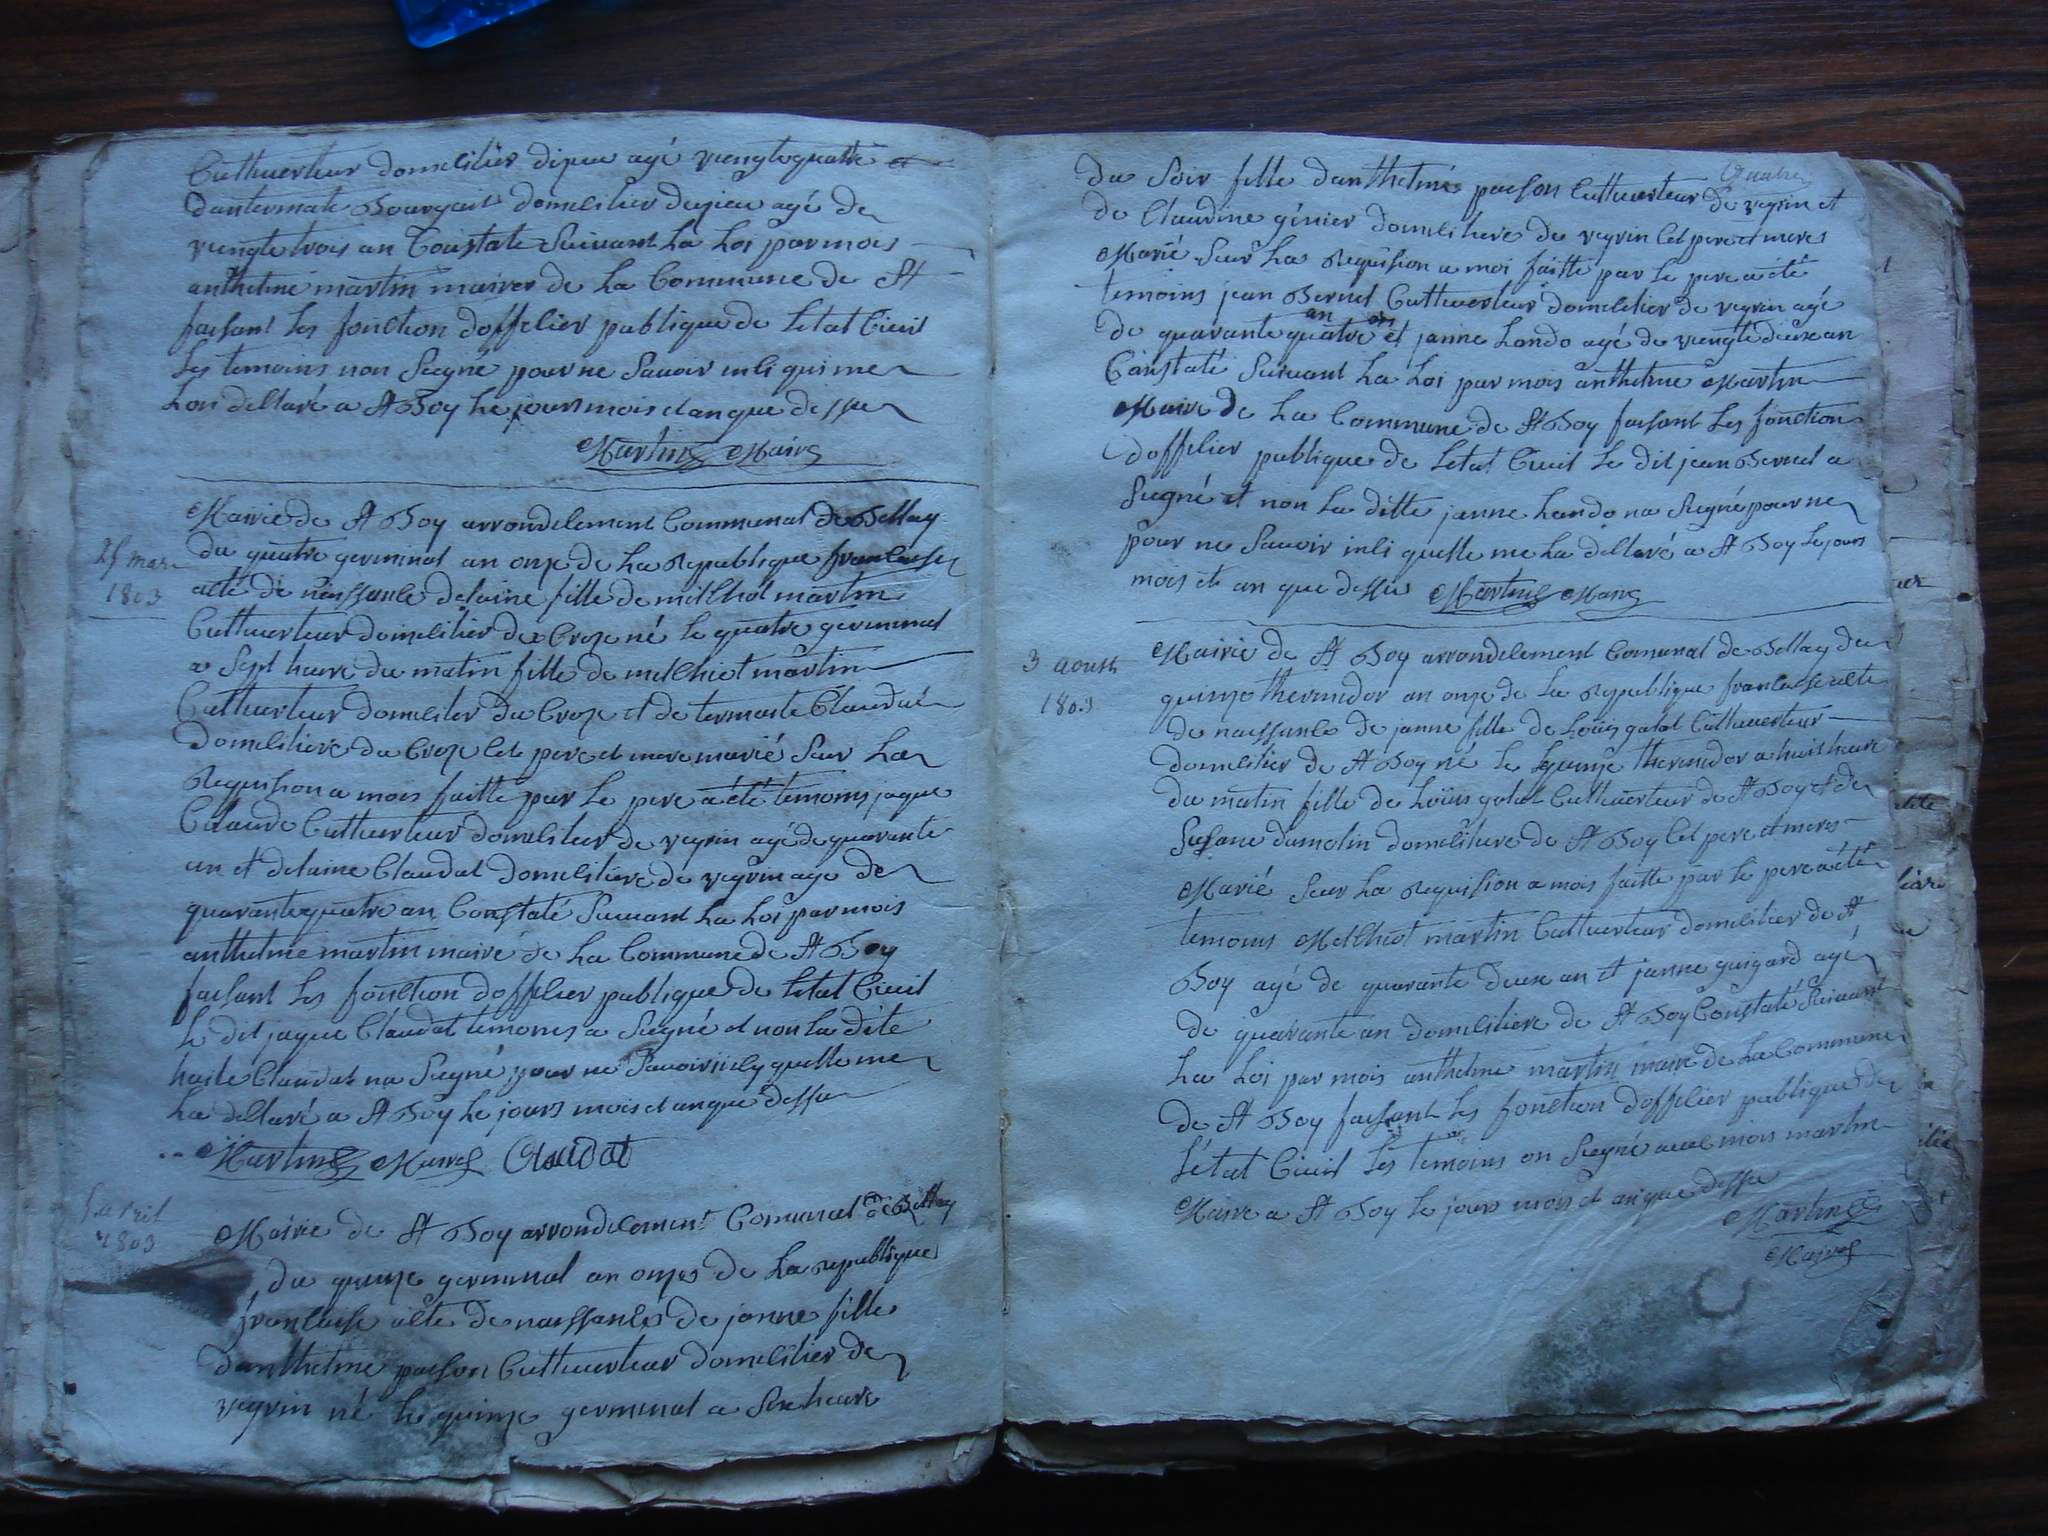 Cultuerteur domecilier dipeu agé viengtequatre et
dantermate Bourgait domecilier dizieu agé de
viengte trois an Constate Suivant La Loi par mois
anthelme martin maire de La Commune de St
faisant Les fonction doffecier publique de Letat Civil
Les temoins non Siegné pour ne Savoir insi qui me
Lon desclaré a St Boy Le jours mois et an que dessu
Martin Maire
Mairie de St Boy arrondicement Communal de Bellay
25 mars
1803
du quatre germinal an onze de La republique francaise
acte de naissance de faine fille de melchiol martin
Cultuerteur domecilier du Croze né Le quatre germinal
a Sept heure du matin fille de melchiot martin
Cultuerteur domecilier du Croze et de termaite Claudat
domeciliere du Croze Cet pere et mere marié Sur La
Requision a mois faitte par Le pere a été temoins jaque
Claude Cultuerteur domecilier de veyrin agé de quarante
an et de faine Claudat domeciliere de veyrin age de
quarante quatre an Constaté Suivant La Loi par mois
anthelme martin maire de La Commune de St Boy
faisant Les fonction doffecier publique de Letat Civil
Le dit jaque Claudat temoins a Siegné et non La dite
Claudat na Siegné pour ne Savoir incy quelle me
La desclaré a St Boy Le jours mois et an que dessu
Martin Maire Claudat
5 avril
1803
Mairie de St Boy arrondicement Comunal de Bellay
du quinze germinal an onze de La republique
francaise acte de naissance de janne fille
danthelme paison Cultuerteur domecilier de
veyrin né Le quinze germinal a Sixe heure
Quatre
du Soir fille danthelme paison Cultuerteur de veyrin et
de Claudine génier domeciliere de veyrin Cet pere et meres
Marié Sur La Requision a moi faitte par Le pere a été
temoins jean Bernet Cultuerteur domecilier de veyrin agé
de quarante quatre an et janne Lando agé de viengte dieuxe an
Constaté Suivant La Loi par mois anthelme Martin
Maire de La Commune de St Boy faisant Les fonction
doffecier publique de Letat Civil Le dit jean Bernet a
Siegné et non La ditte janne Lando na Siegné pour ne
pour ne Savoir insi quelle me La desclaré a St Boy Le jours
mois et an que dessu Martin Maire
3 aoust
1803
Mairie de St Boy arrondicement Comunal de Bellay du
quinze thermidor an onze de La Republique francaise acte
de naissance de janne fille de Loüis galat Cultuerteur
domecilier de St Boy né Le quinze thermidor a huit heure
du matin fille de Loüis galat Cultuerteur de St Boy et de
Susane dumolin domeciliere de St Boy Cet pere et meres
Marié Sur La Requision a mois faitte par Le pere a été
temoins Melchiot martin Cultuerteur domecilier de St
Boy agé de quarante Deuxe an et janne guigard agé
de quarante an domeciliere de St Boy Constaté Suivant
La Loi par mois anthelme martin maire de La Commune
de St Boy faisant Les fonction doffecier publique de
Létat Civil Les temoins on Siegné avec mois martin
Maire a St Boy Le jours mois et an que dessu
Martin
Maire